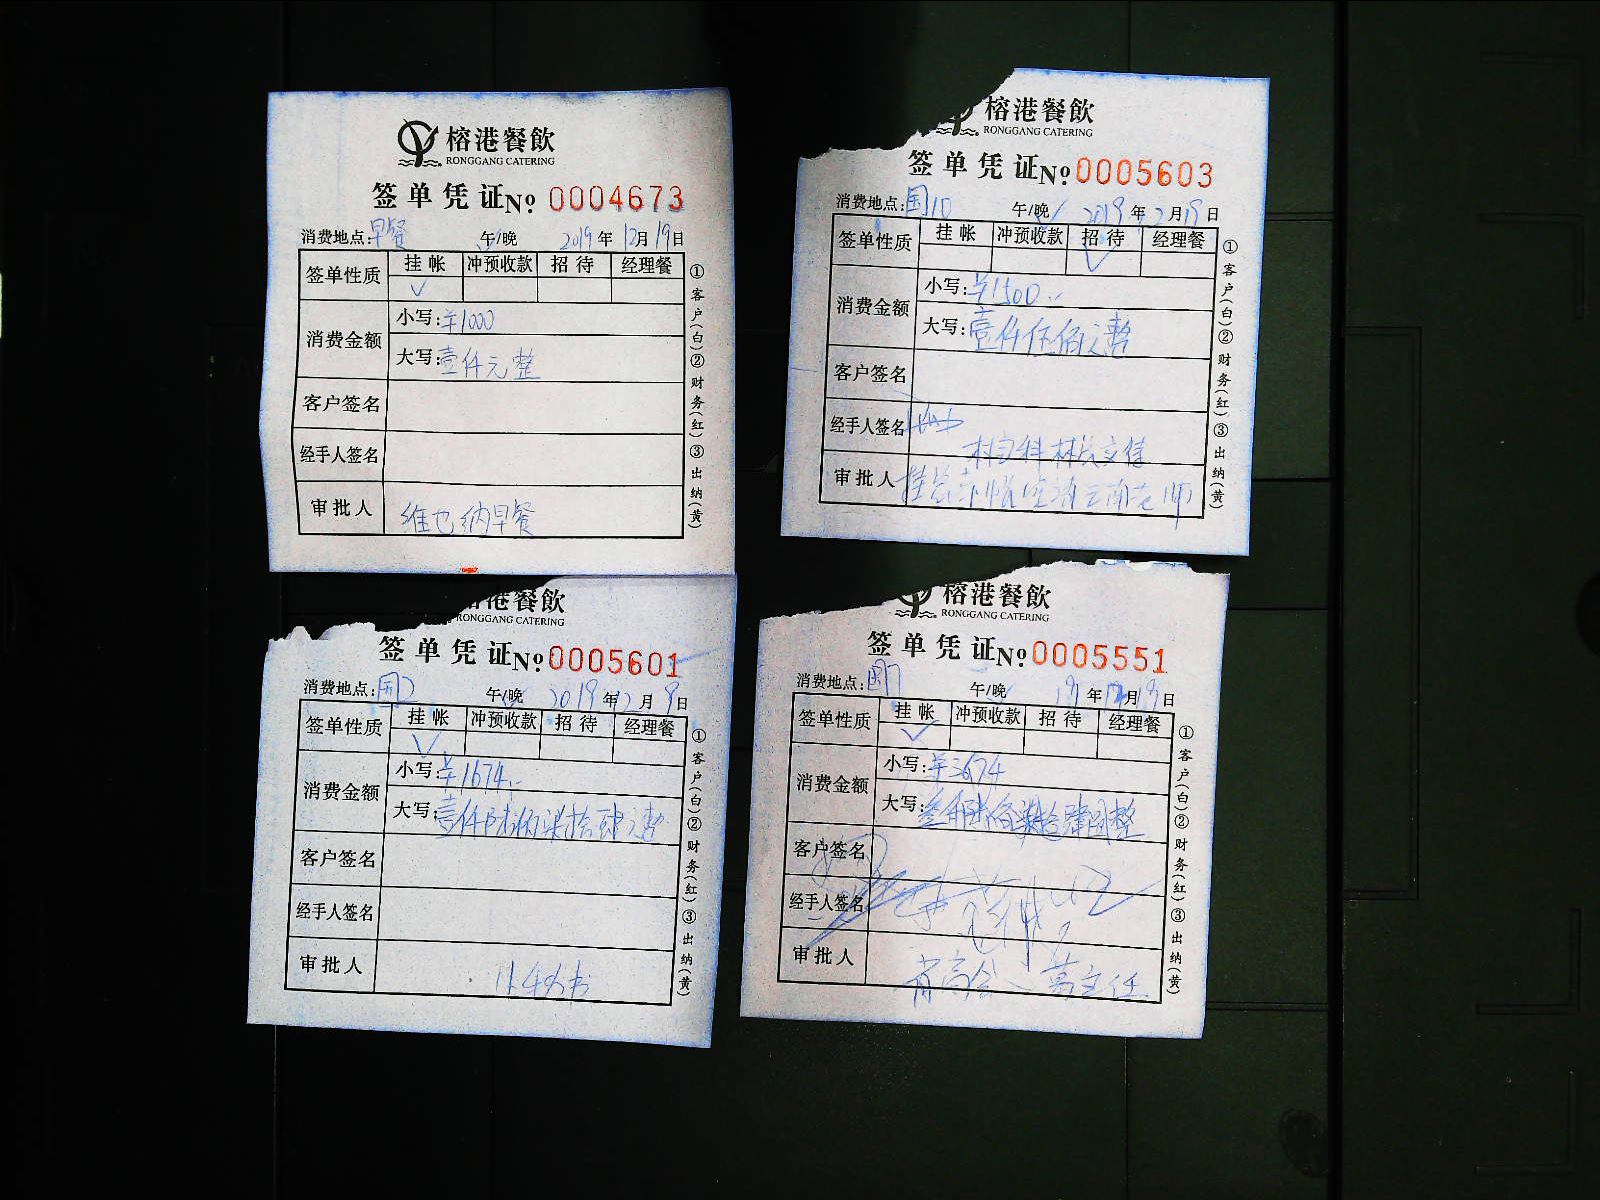 榕港餐飲
RONGGANG CATERING
签单凭证№ 0004673
消费地点:早餐 午/晚 2019年12月19日
签单性质 挂帐 冲预收款 招待 经理餐
✓
消费金额 小写:¥1000
大写:壹仟元整
客户签名
经手人签名
审批人 维也纳早餐
①客户(白)②财务(红)③出纳(黄)
榕港餐飲
RONGGANG CATERING
签单凭证№ 0005603
消费地点:国10 午/晚 2019年12月19日
签单性质 挂帐 冲预收款 招待 经理餐
✓
消费金额 小写:¥1500
大写:壹仟伍佰元整
客户签名
经手人签名
审批人
①客户(白)②财务(红)③出纳(黄)
港餐飲
RONGGANG CATERING
签单凭证№ 0005601
消费地点:国2 午/晚 2019年12月 日
签单性质 挂帐 冲预收款 招待 经理餐
✓
消费金额 小写:¥1674
大写:壹仟陆佰柒拾肆元整
客户签名
经手人签名
审批人
①客户(白)②财务(红)③出纳(黄)
榕港餐飲
RONGGANG CATERING
签单凭证№ 0005551
消费地点:国7 午/晚 19年12月19日
签单性质 挂帐 冲预收款 招待 经理餐
✓
消费金额 小写:¥3674
大写:叁仟陆佰柒拾肆圆整
客户签名
经手人签名
审批人 主任
①客户(白)②财务(红)③出纳(黄)